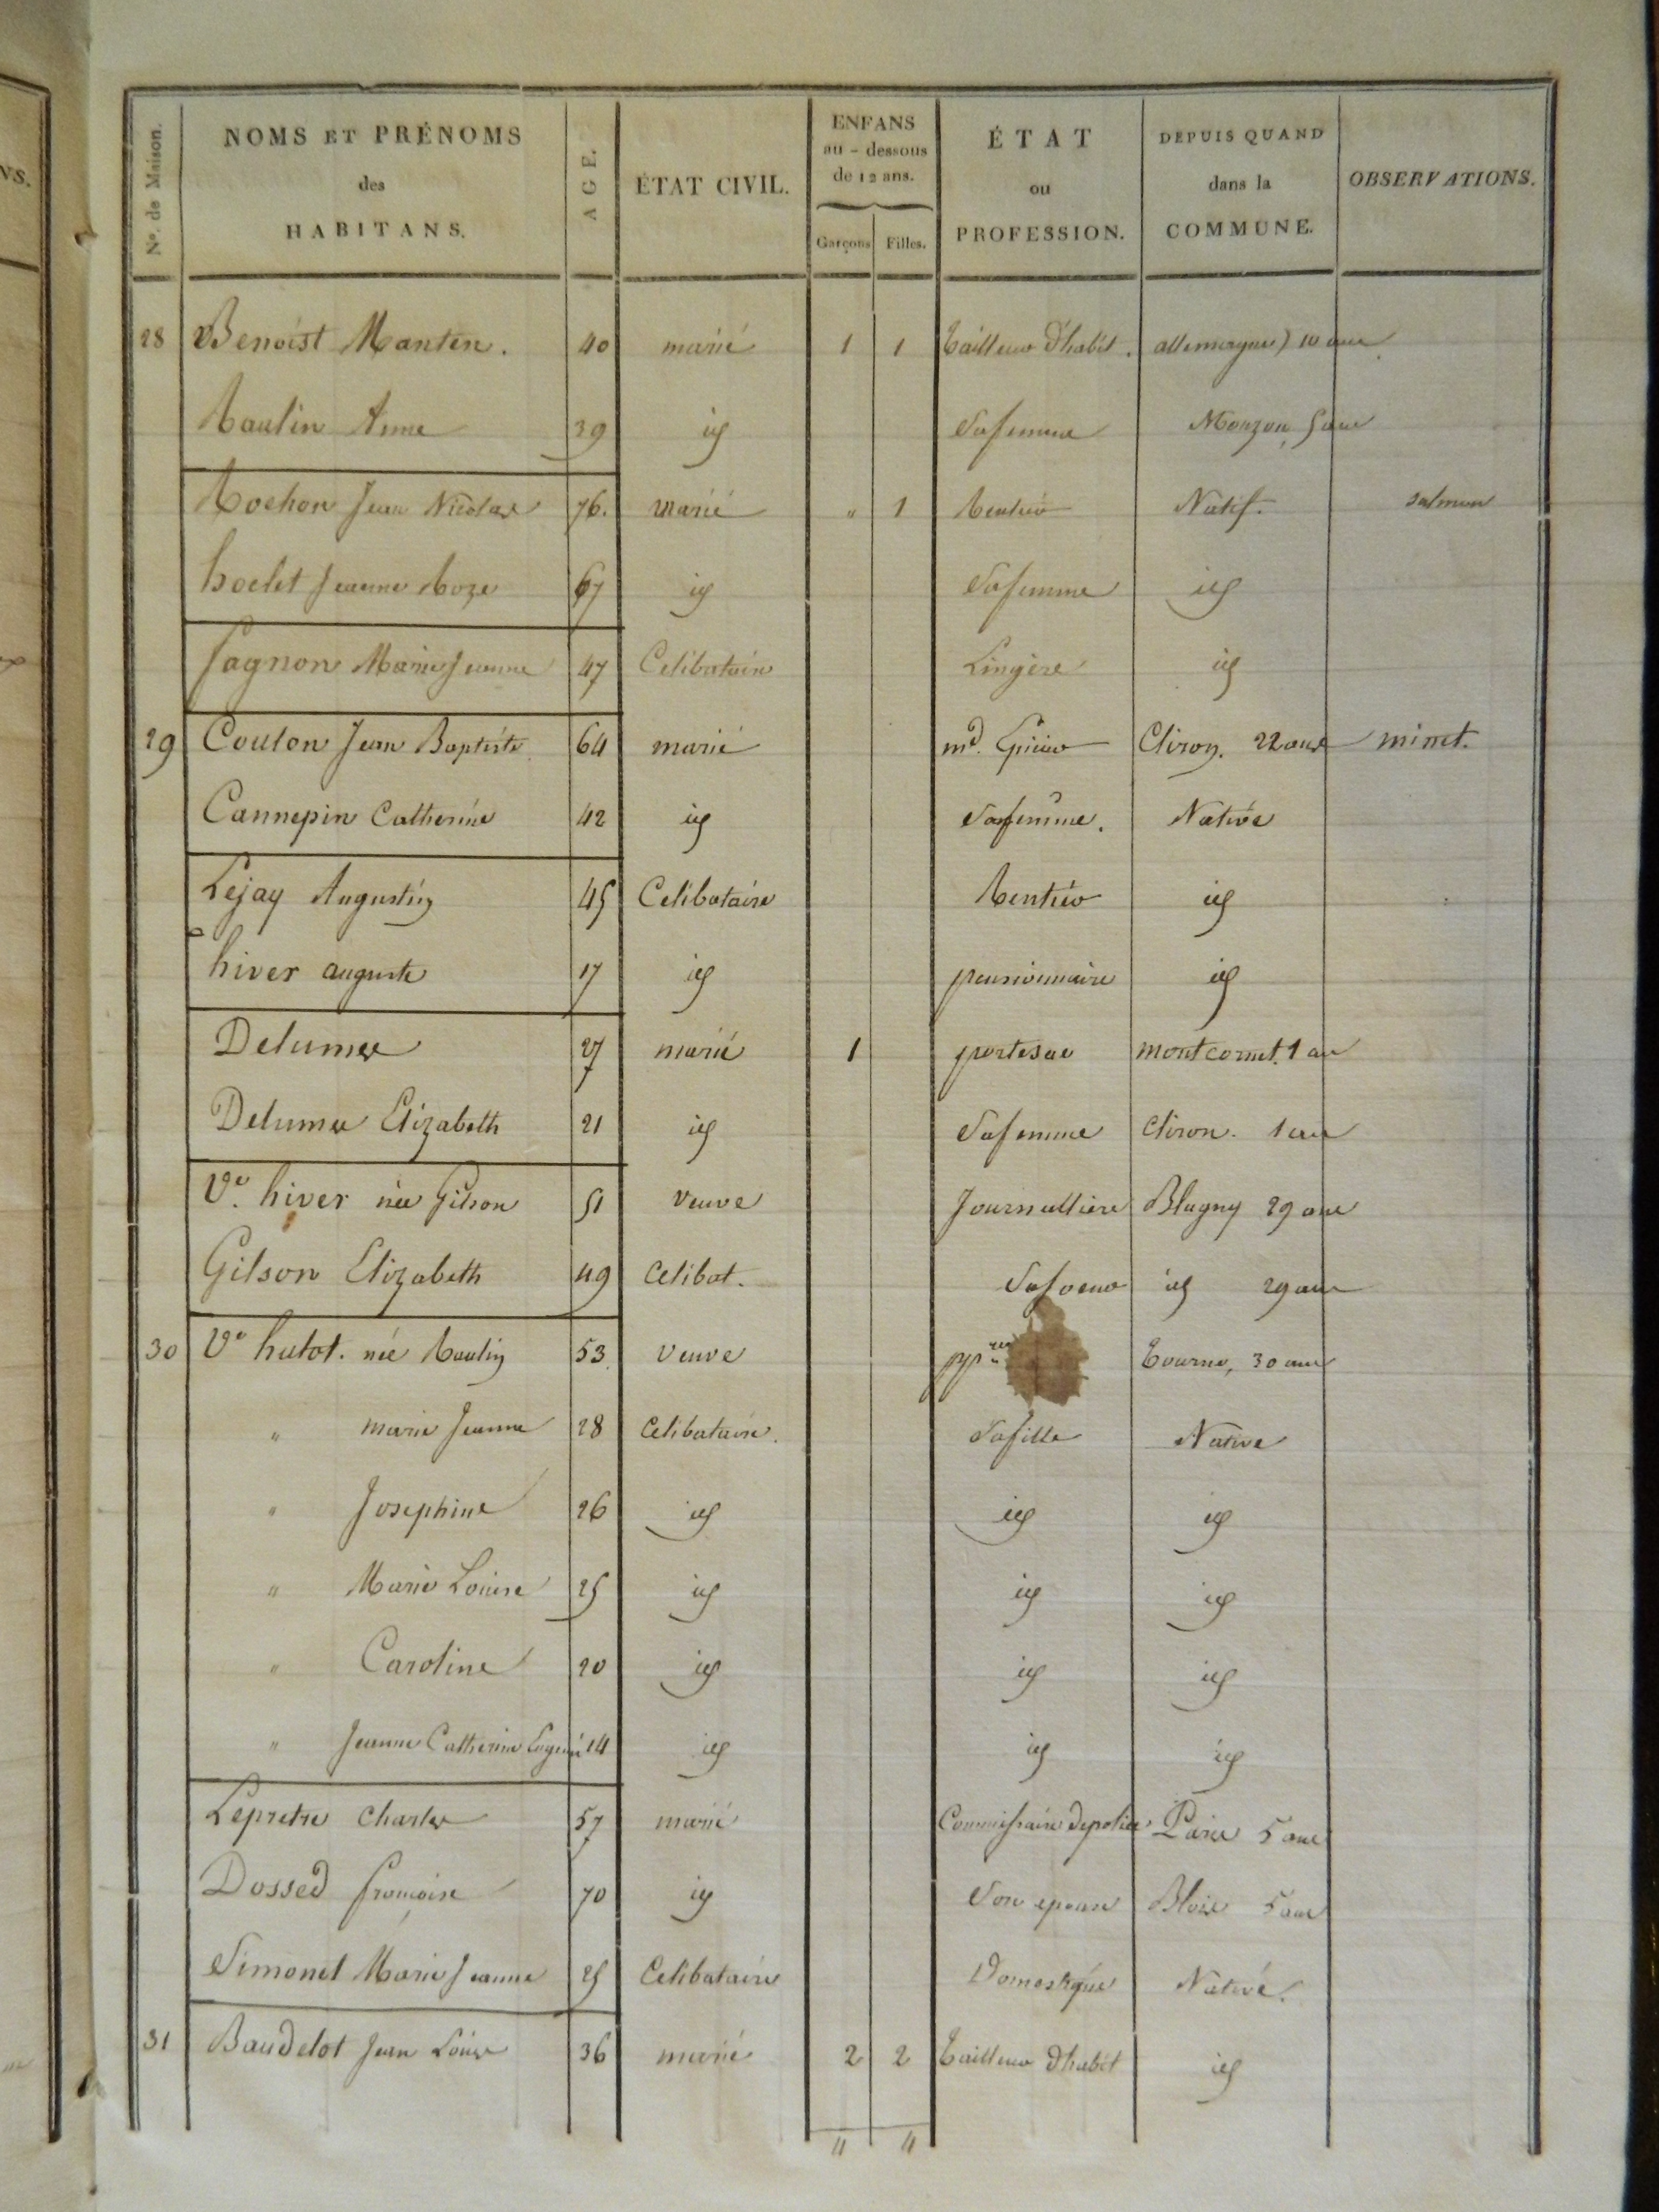 NS.
N°. de Maison.
NOMS ET PRÉNOMS
des
HABITANS.
AGE.
ÉTAT CIVIL.
ENFANS
au-dessous
de 12 ans.
Garçons Filles.
ÉTAT
ou
PROFESSION.
DEPUIS QUAND
dans la
COMMUNE.
OBSERVATIONS.
28 Benoist Manten. 40 marié 1 1 tailleur d'habit. allemagne 10 ans
Raulin Anne 39 id Sa femme Mouzon, 5 ans
Rochon Jean Nicolas 76. marié " 1 Rentier Natif. salmon
hoclet Jeanne Roze 67 id Sa femme id
Fagnon Marie Jeanne 47 Celibataire Lingère id
29 Coulon Jean Baptiste 64 marié md. Epicier Cliron. 22 ans minet.
Cannepin Catherine 42 id Sa femme. Native
Lejay Augustin 45 Celibataire Rentier id
hiver auguste 17 id pensionnaire id
Delumee 27 marié 1 portesac montcornet. 1 an
Delumee Elizabeth 21 id Sa femme Cliron. 1 an
Ve. hiver née Gilson 51 veuve Journalliere Blagny 29 ans
Gilson Elizabeth 49 Celibat. Sa soeur id 29 ans
30 Ve hulot. née Raulin 53. veuve ppre Tourne, 30 ans
" marie Jeanne 28 Celibataire. Sa fille Native
" Josephine 26 id id id
" Marie Louise 25 id id id
" Caroline 20 id id id
" Jeanne Catherine Eugenie 14 id id id
Lepretre Charles 57 marié Commissaire de police Paris 5 ans
Dossed françoise 70 id Son epouse Blois 5 ans
Simonet Marie Jeanne 25 Celibataire Domestique Native.
31 Baudelot Jean Louis 36 marié 2 2 tailleur d'habit id
4 4